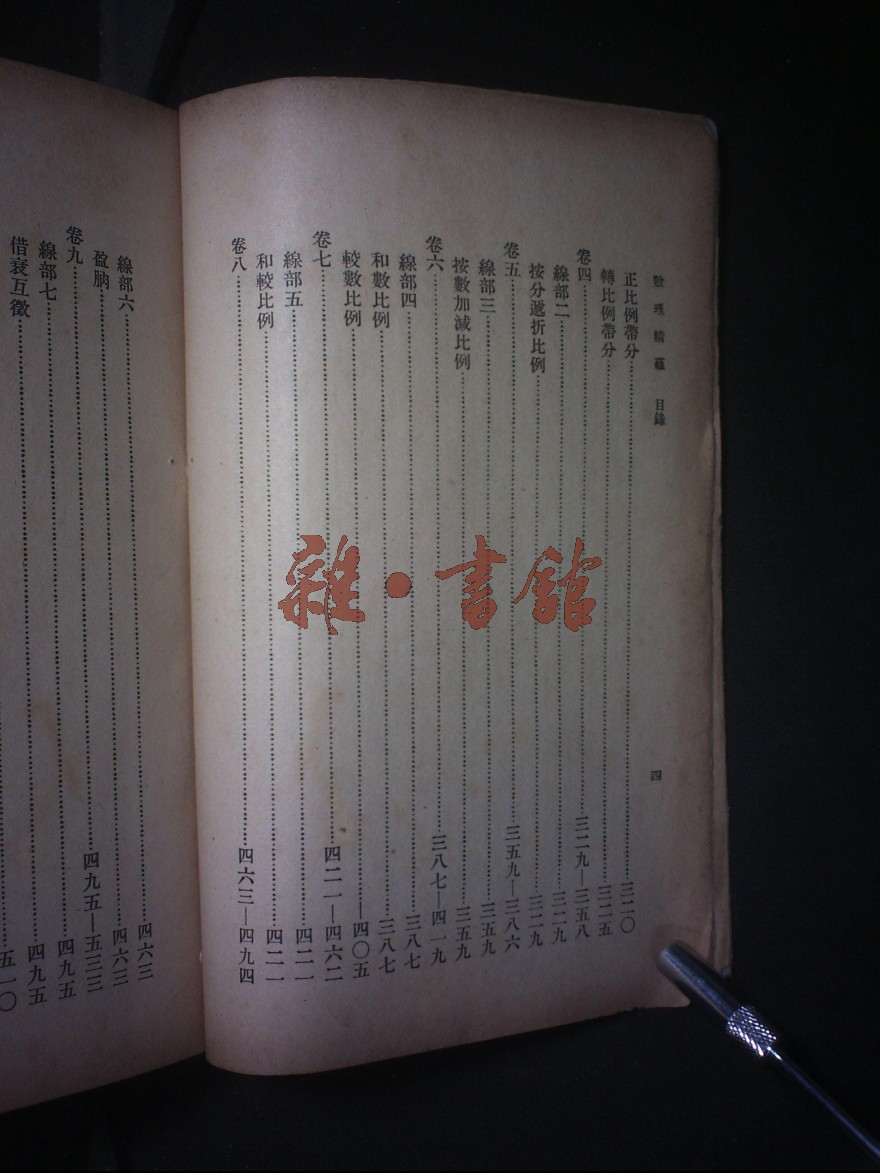 數理精蘊 目錄 四
正比例帶分……三二〇
轉比例帶分……三二五
卷四……三二九—三五八
線部二……三二九
按分遞折比例……三二九
卷五……三五九—三八六
線部三……三五九
按數加減比例……三五九
卷六……三八七—四一九
線部四……三八七
和數比例……三八七
較數比例……四〇五
卷七……四二一—四六二
線部五……四二一
和較比例……四二一
卷八……四六三—四九四
線部六……四六三
盈朒……四六三
卷九……四九五—五三三
線部七……四九五
借衰互徵……四九五
五一〇
雜·書館